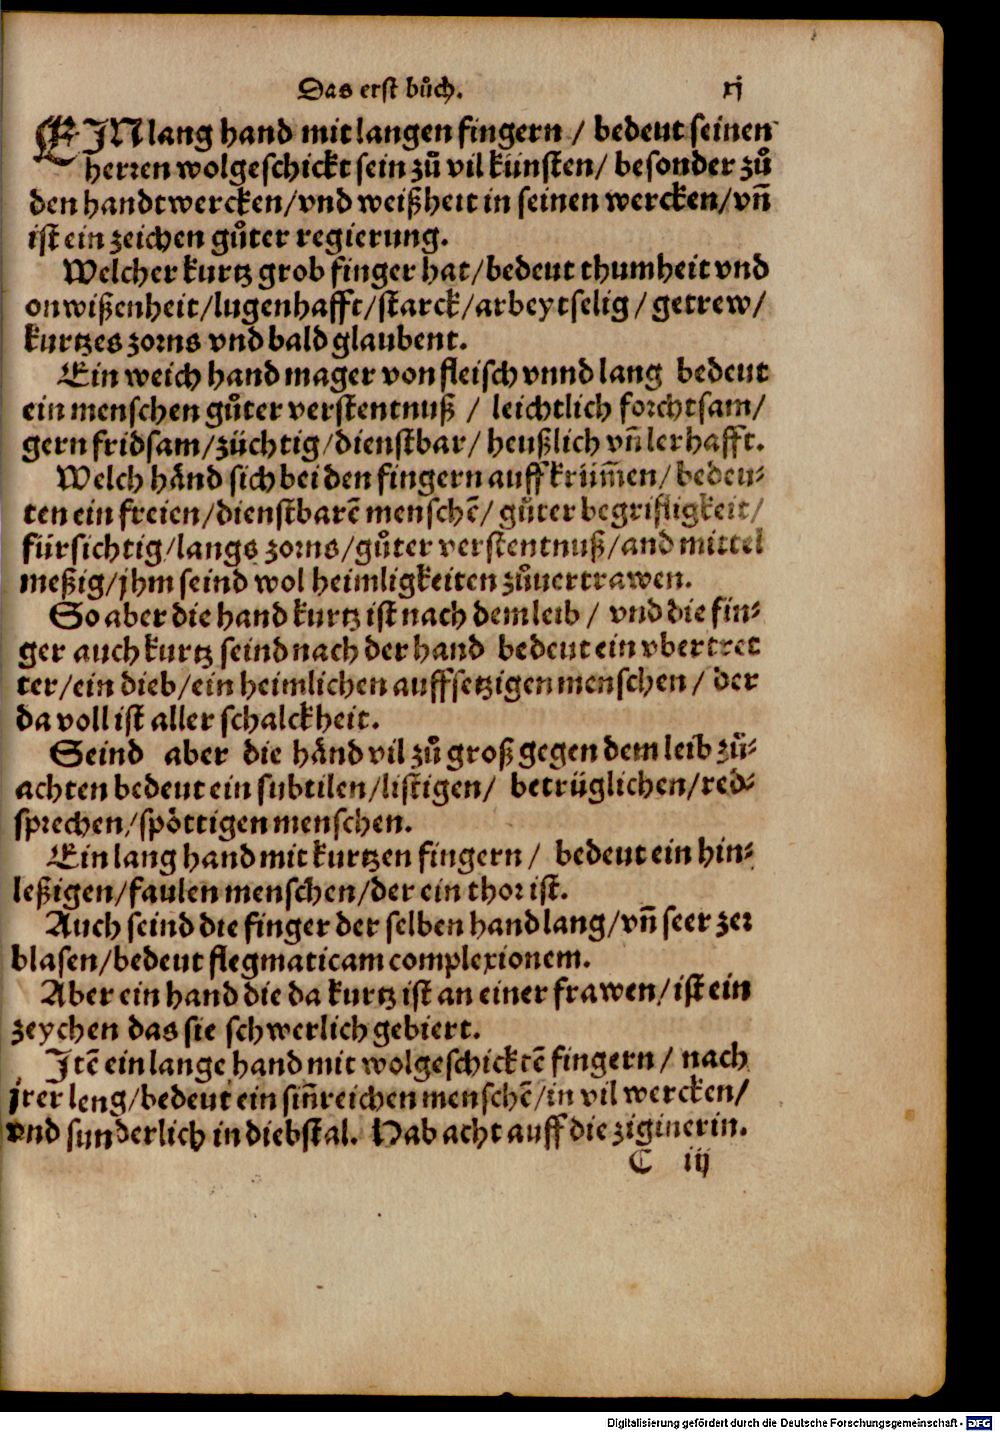 Das erst bůch. xj
EJN lang hand mit langen fingern / bedeut seinen
herren wolgeschickt sein zů vil künsten/ besonder zů
den handtwercken/vnd weißheit in seinen wercken/vñ
ist ein zeichen gůter regierung.
Welcher kurtz grob finger hat/bedeut thumheit vnd
onwißenheit/lugenhafft/starck/arbeytselig/ getrew/
kurtzes zorns vnd bald glaubent.
Ein weich hand mager von fleisch vnnd lang bedeut
ein menschen gůter verstentnuß / leichtlich forchtsam/
gern fridsam/züchtig/dienstbar/ heußlich vñ lerhafft.
Welch händ sich bei den fingern auff krüm̃en/ bedeu-
ten ein freien/dienstbarẽ menschẽ/ gůter begriffligkeit/
fürsichtig/langs zorns/gůter verstentnuß/and mittel
meßig/jhm seind wol heimligkeiten zůuertrawen.
So aber die hand kurtz ist nach dem leib / vnd die fin-
ger auch kurtz seind nach der hand bedeut ein vbertret
ter/ein dieb/ein heimlichen auffsetzigen menschen/ der
da voll ist aller schalckheit.
Seind aber die händ vil zů groß gegen dem leib zů-
achten bedeut ein subtilen/listigen/ betrüglichen/red-
sprechen/spöttigen menschen.
Ein lang hand mit kurtzen fingern/ bedeut ein hin-
leßigen/faulen menschen/der ein thor ist.
Auch seind die finger der selben hand lang/vñ seer zer
blasen/bedeut flegmaticam complexionem.
Aber ein hand die da kurtz ist an einer frawen/ist ein
zeychen das sie schwerlich gebiert.
Jtẽ ein lange hand mit wolgeschicktẽ fingern/ nach
jrer leng/bedeut ein siñreichen menschẽ/in vil wercken/
vnd sunderlich in diebstal. Hab acht auff die ziginerin.
C iij
Digitalisierung gefördert durch die Deutsche Forschungsgemeinschaft - DFG